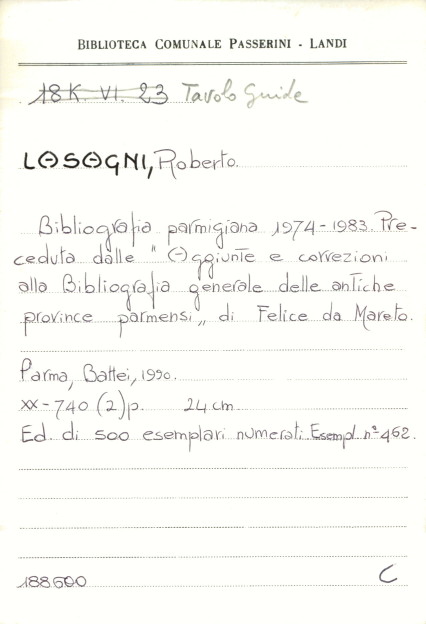 BIBLIOTECA COMUNALE PASSERINI - LANDI
18K. VI. 23 Tavolo Guide
LASAGNI, Roberto.
Bibliografia parmigiana 1974-1983. Pre-
ceduta dalle "Aggiunte e correzioni
alla Bibliografia generale delle antiche
province parmensi„ di Felice da Mareto.
Parma, Battei, 1990.
XX-740 (2)p. 24 cm
Ed. di 500 esemplari numerati. Esempl. n°462.
188600 C